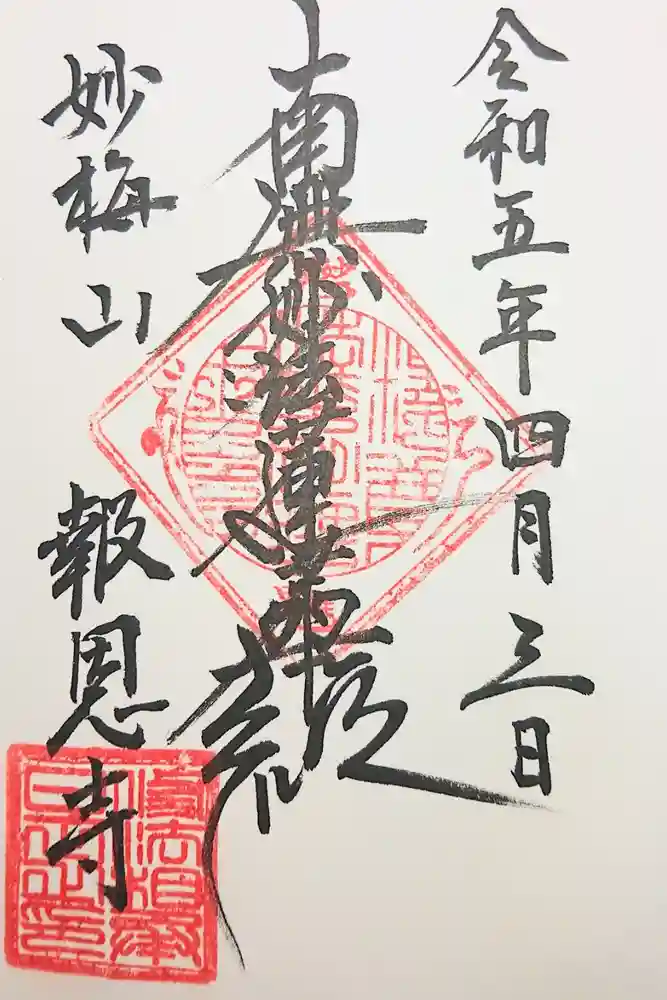 令和五年四月三日
南無妙法蓮華経
妙梅山
報恩寺